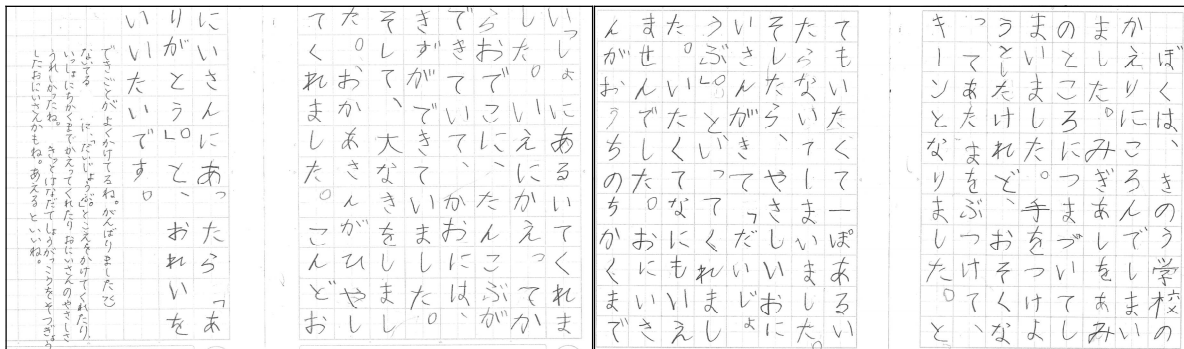 ぼくは、きのう学校の
かえりにころんでしまい
ました。みぎあしをあみ
のところにつまづいてし
まいました。手をつけよ
うとしたけれど、おそくな
ってあたまをぶつけて、
キーンとなりました。と
てもいたくて一ぽあるい
たらないてしまいました。
そしたら、やさしいおに
いさんがきて「だいじょ
うぶ」。と、いってくれまし
た。いたくてなにもいえ
ませんでした。おにいさ
んがおうちのちかくまで
いっしょにあるいてくれま
した。いえにかえってか
らおでこに、たんこぶが
できていて、かおには、
きずができていました。
そして、大なきをしまし
た。おかあさんがひやし
てくれました。こんどお
にいさんにあったら「あ
りがとう」。と、おれいを
いいたいです。
できごとがよくかけてるね。がんばりました
ないてる に、「だいじょうぶ。」とこえをかけてくれたり、
いっしょにちかくまでかえってくれたりおにいさんのやさしさ
うれしかったね。 きっとはなだてしょうがっこうをそつぎょう
したおにいさんかもね。あえるといいね。